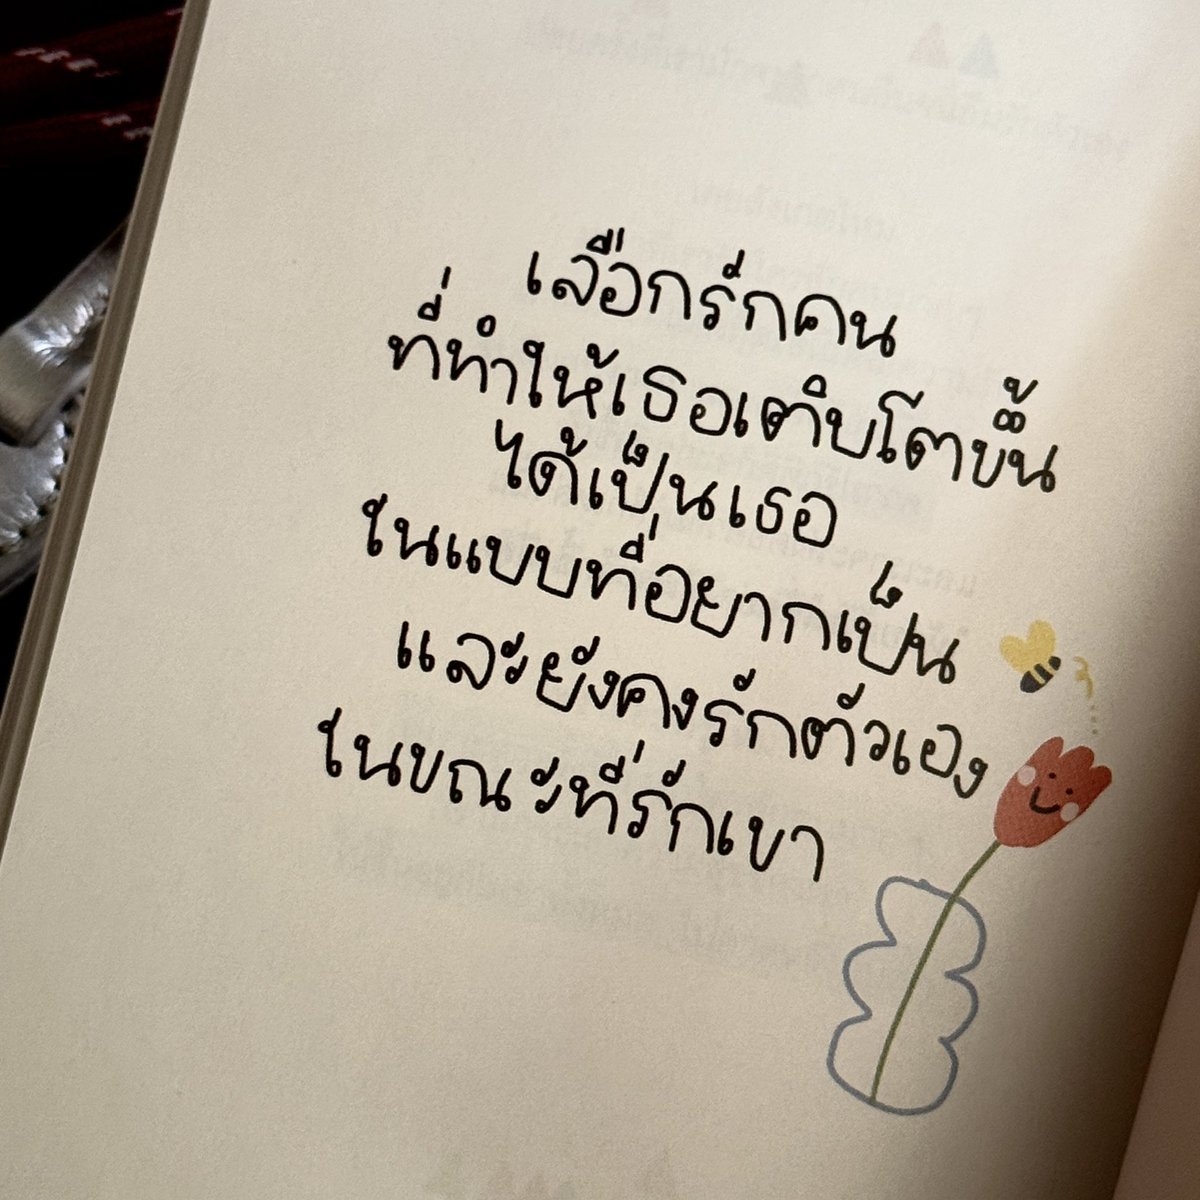 เลือกรักคน
ที่ทำให้เธอเติบโตขึ้น
ได้เป็นเธอ
ในแบบที่อยากเป็น
และยังคงรักตัวเอง
ในขณะที่รักเขา